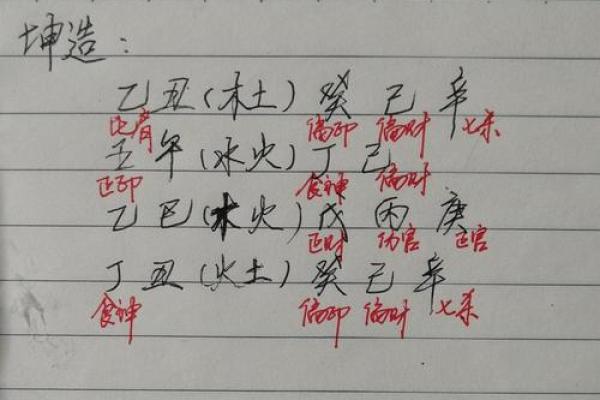 坤造：
乙丑(木土) 癸 己 辛
比肩 偏印 偏财 七杀
壬午(水火) 丁 己
正印 食神 偏财
乙巳(木火) 戊 丙 庚
正财 伤官 正官
丁丑(火土) 癸 己 辛
食神 偏印 偏财 七杀